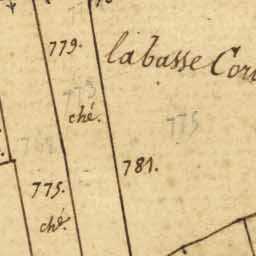 779.
labasse Cor
ché.
775
781.
775.
ché.